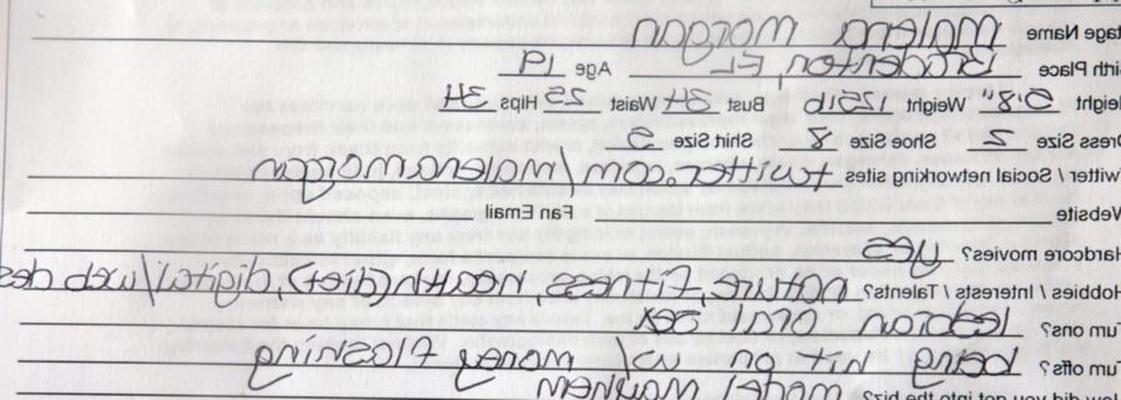 tage Name malena morgan
irth Place Bradenton, FL Age 19
eight 5'8" Weight 125lb Bust 34 Waist 25 Hips 34
Dress Size 2 Shoe Size 8 Shirt Size S
witter / Social networking sites twitter.com/malenamorgan
Website Fan Email
Hardcore movies? yes
Hobbies / Interests / Talents? nature, Fitness, Health(diet), digital/web des
Turn ons? lesbian oral sex
Turn offs? being hit on w/ money flashing
How did you get into the biz? model mayhem